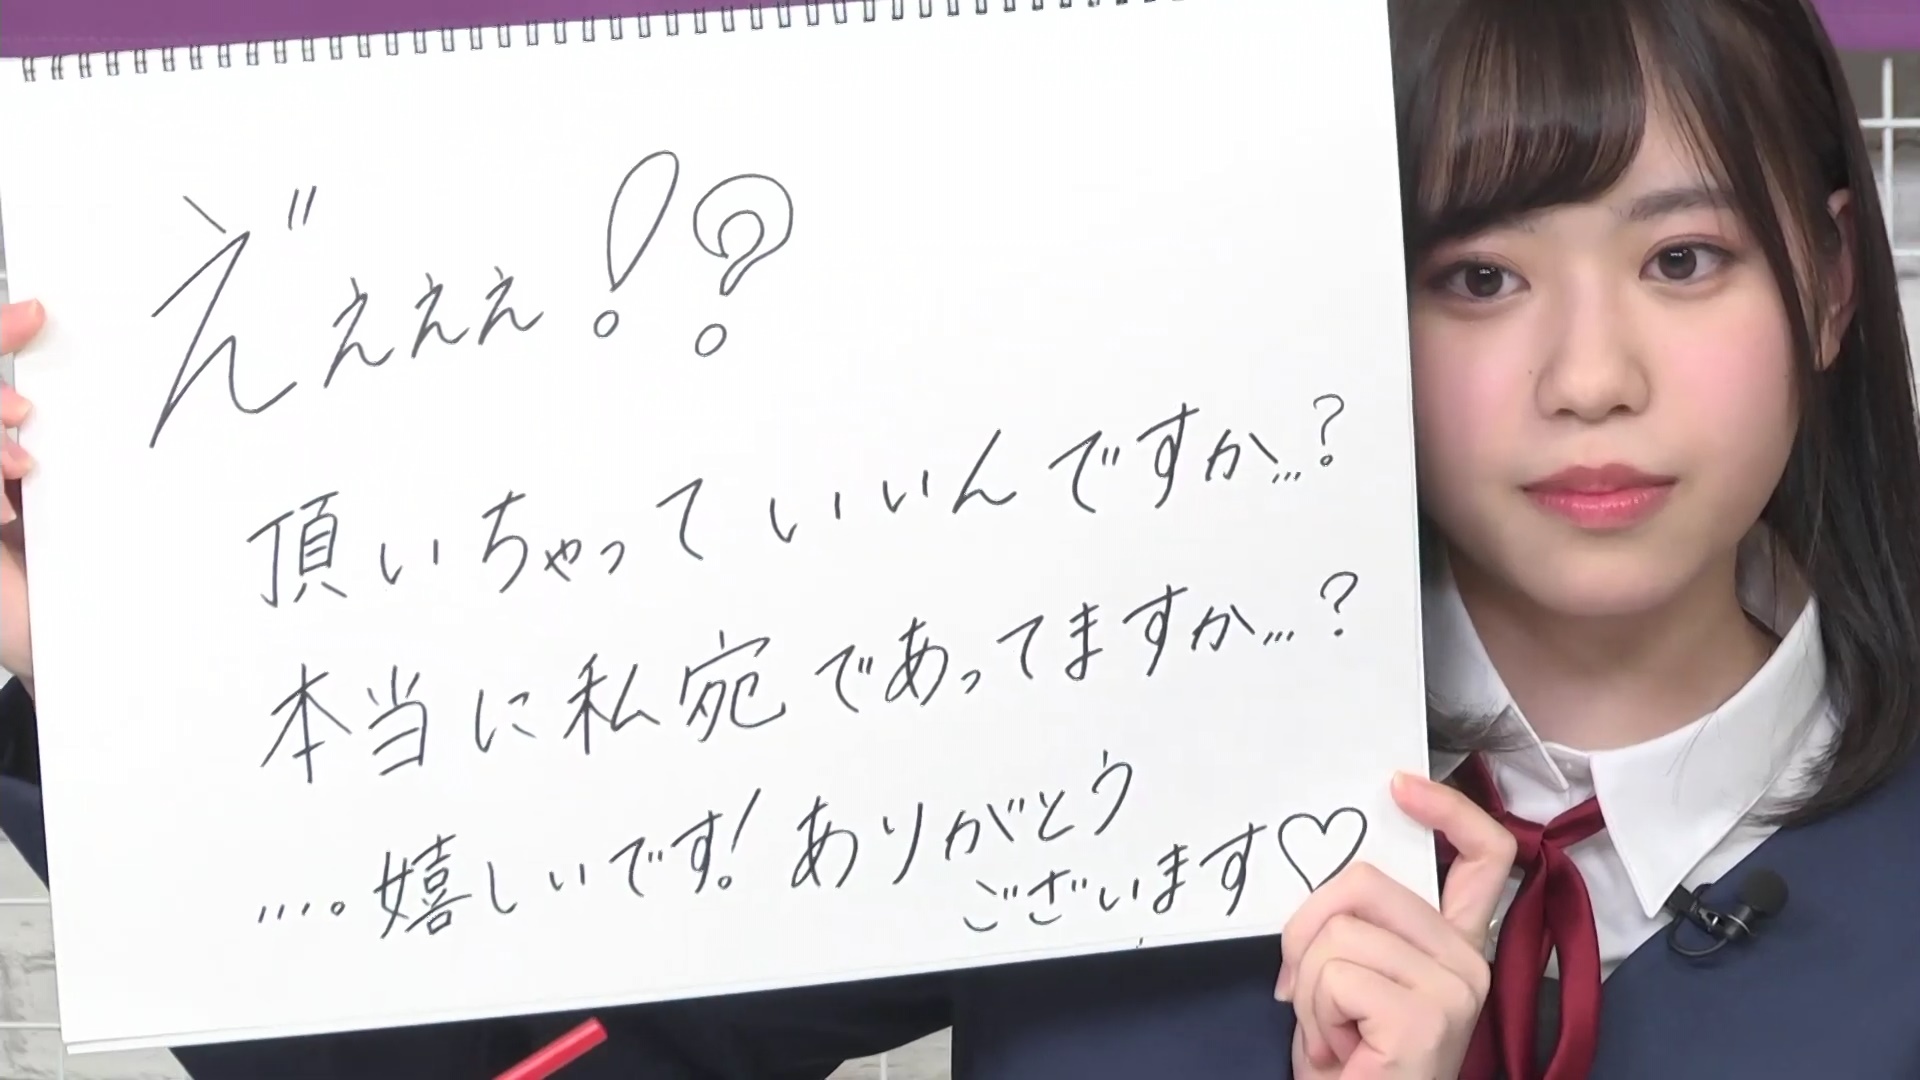 え゛ぇぇぇ!?
頂いちゃっていいんですか...?
本当に私宛であってますか...?
....。嬉しいです!ありがとう
ございます♡